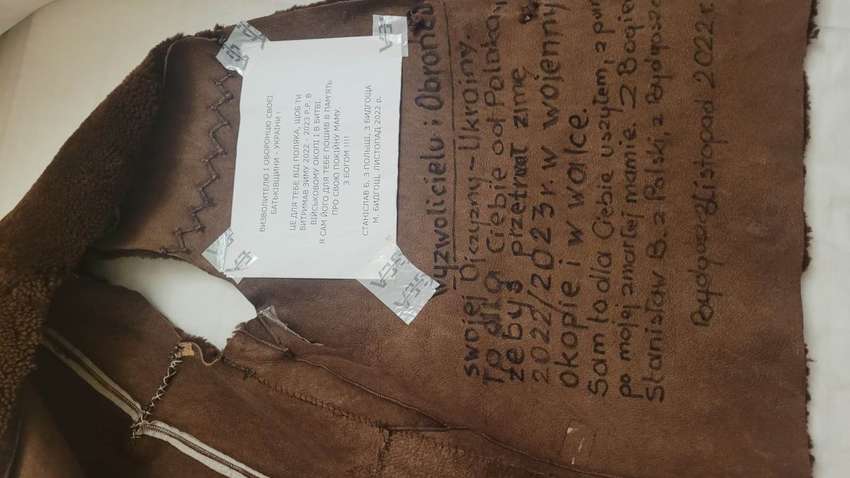 ВИЗВОЛИТЕЛЮ І ОБОРОНЦЮ СВОЄЇ
БАТЬКОВЩИНИ - УКРАЇНИ !
ЦЕ ДЛЯ ТЕБЕ ВІД ПОЛЯКА, ЩОБ ТИ
ВИТРИМАВ ЗИМУ 2022 - 2023 Р.Р. В
ВІЙСЬКОВОМУ ОКОПІ І В БИТВІ.
Я САМ ЙОГО ДЛЯ ТЕБЕ ПОШИВ В ПАМ'ЯТЬ
ПРО СВОЮ ПОКІЙНУ МАМУ.
З БОГОМ !!!!
СТАНІСЛАВ Б. З ПОЛЬЩІ, З БИДГОЩА
М. БИДГОЩ, ЛИСТОПАД 2022 р.
Wyzwolicielu i Obrońco
swojej Ojczyzny - Ukrainy.
To dla Ciebie od Polaka,
żebyś przetrwał zimę
2022/2023 r. w wojenny
okopie i w walce.
Sam to dla Ciebie uszyłem, z
po mojej zmarłej mamie. Z Bogie
Stanisław B. z Polski, z Bydgoszc
Bydgoszcz, listopad 2022 r.